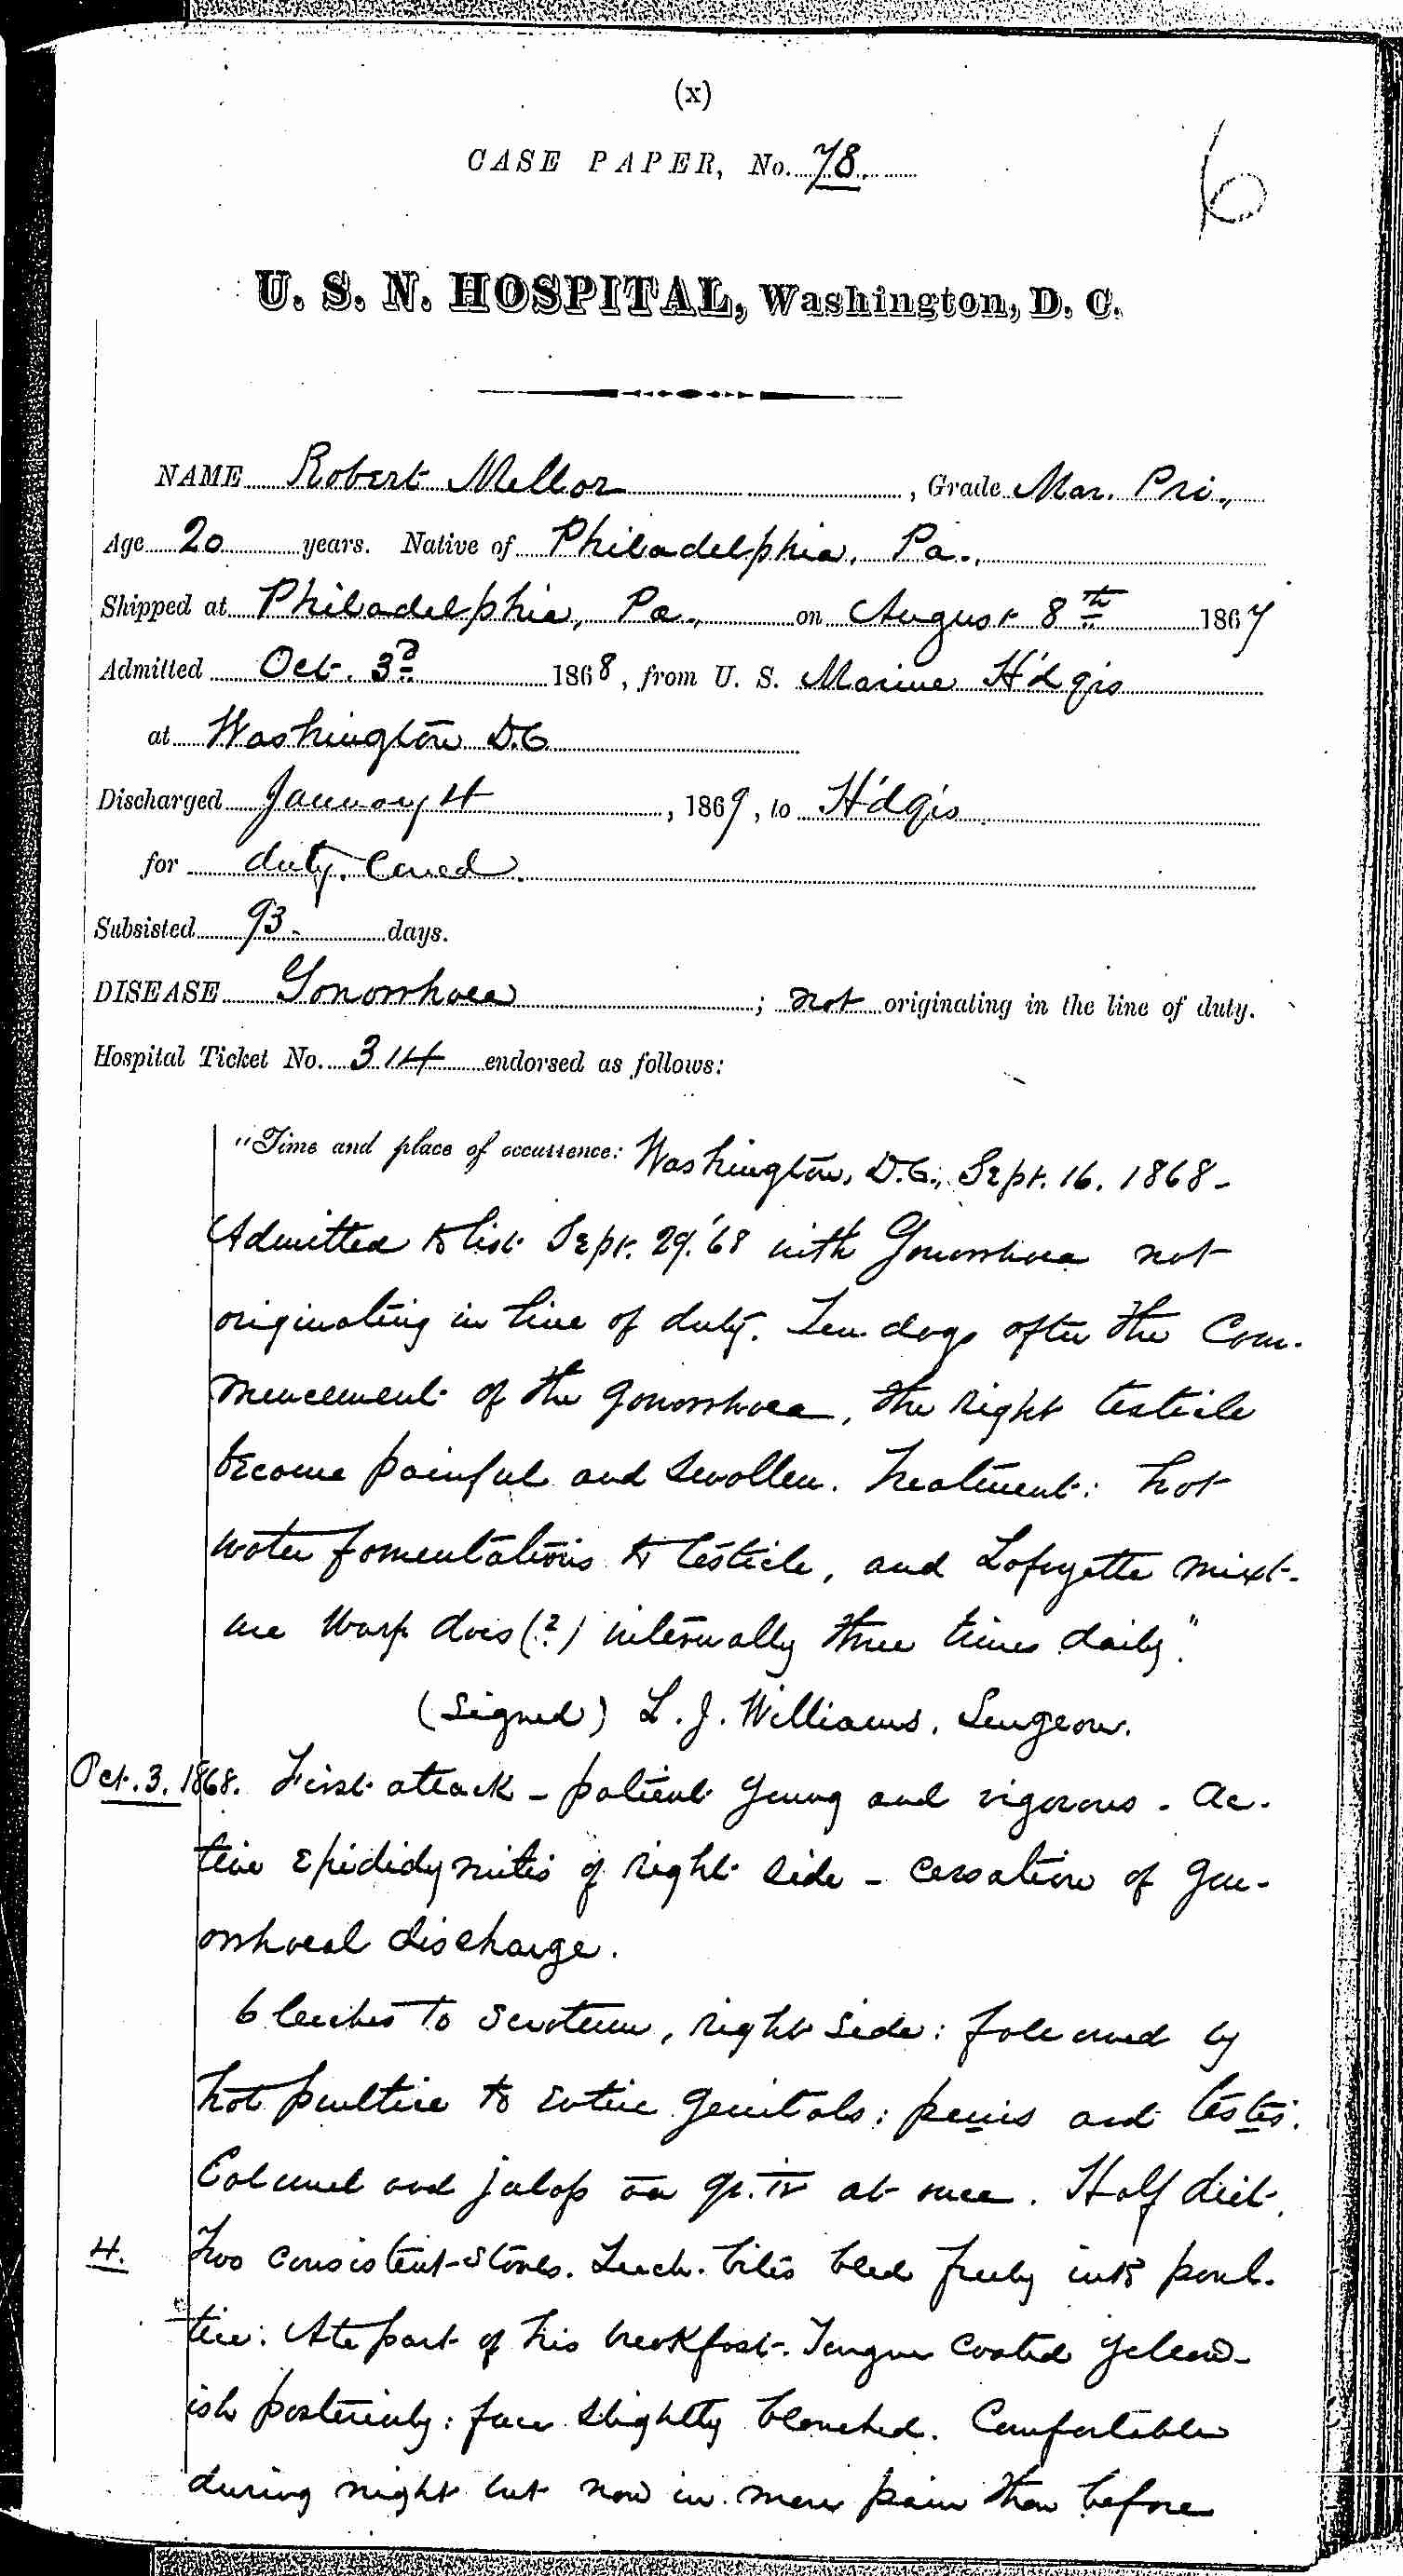 (x)
CASE PAPER, No. 78.
6
U. S. N. HOSPITAL, Washington, D. C.
NAME Robert Mellor, Grade Mar. Pri.,
Age 20 years. Native of Philadelphia, Pa.,
Shipped at Philadelphia, Pa., on August 8th 1867
Admitted Oct. 3d 1868, from U. S. Marine H'dqrs
at Washington D.C.
Discharged January 4, 1869, to H'dqrs.
for duty. Cured.
Subsisted 93. days.
DISEASE Gonorrhoea; not originating in the line of duty.
Hospital Ticket No. 314 endorsed as follows:
"Time and place of occurrence: Washington, D.C., Sept. 16. 1868-
Admitted to list Sept. 29. '68 with Gonorrhoea not
originating in line of duty. Ten days after the com-
mencement of the gonorrhoea, the right testicle
became painful and swollen. Treatment: hot
water fomentations to testicle, and Lafayette mixt-
ure does (?) internally three times daily."
(Signed) L. J. Williams, Surgeon.
Oct. 3. 1868. First attack - patient young and vigorous. Ac-
tive epididymitis of right side - cessation of gon-
orrhoeal discharge.
6 leeches to scrotum, right side: followed by
hot poultice to entire genitals: penis and testes.
Calomel and jalap aa gr. iv at once. Half diet.
4. Two consistent stools. Leech-bites bled freely into poul-
tice. Ate part of his breakfast. Tongue coated yellow-
ish posteriorly: face slightly blanched. Comfortable
during night but now in more pain than before